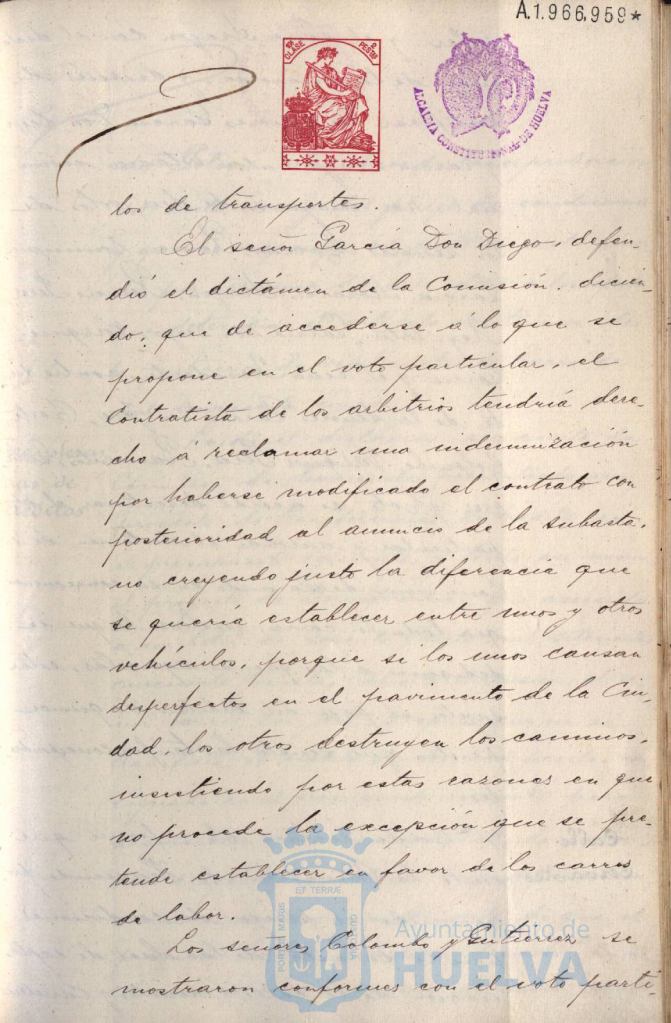 A.1.966.959*
10ª CLASE 2 PESTAS
ALCALDIA CONSTITUCIONAL DE HUELVA
los de transportes.
El señor García Don Diego, defen-
dió el dictámen de la Comisión, dicien-
do, que de accederse á lo que se
propone en el voto particular, el
Contratista de los arbitrios tendría dere-
cho á reclamar una indemnización
por haberse modificado el contrato con
posterioridad al anuncio de la subasta,
no creyendo justo la diferencia que
se quería establecer entre unos y otros
vehículos, porque si los unos causan
desperfectos en el pavimento de la Ciu-
dad, los otros destruyen los caminos,
insistiendo por estas razones en que
no procede la excepción que se pre-
tende establecer en favor de los carros
de labor.
Los señores Colombo y Gutierrez se
mostraron conformes con el voto parti-
PORTUS MARIS ET TERRÆ CUSTODIA
Ayuntamiento de
HUELVA